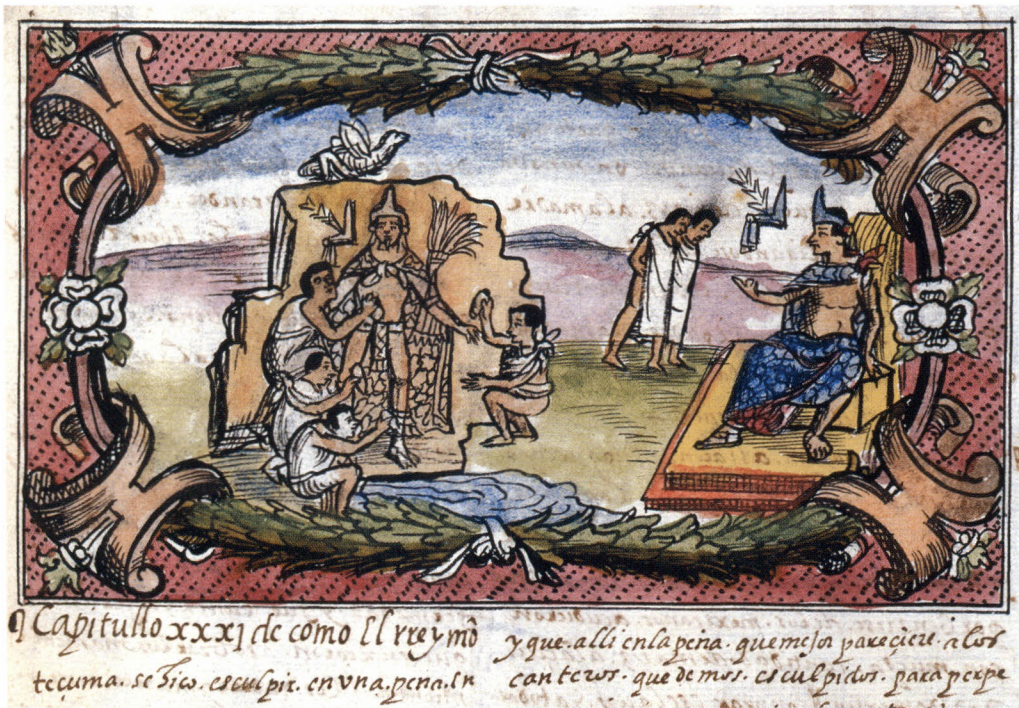 Capitullo xxxj de como El rrey mõ
teçuma. se hico. esculpir. en vna. pena. En
y que. alli en la peña. que mejor pareçiere. a los
canteros. que demos. esculpidos. para perpe